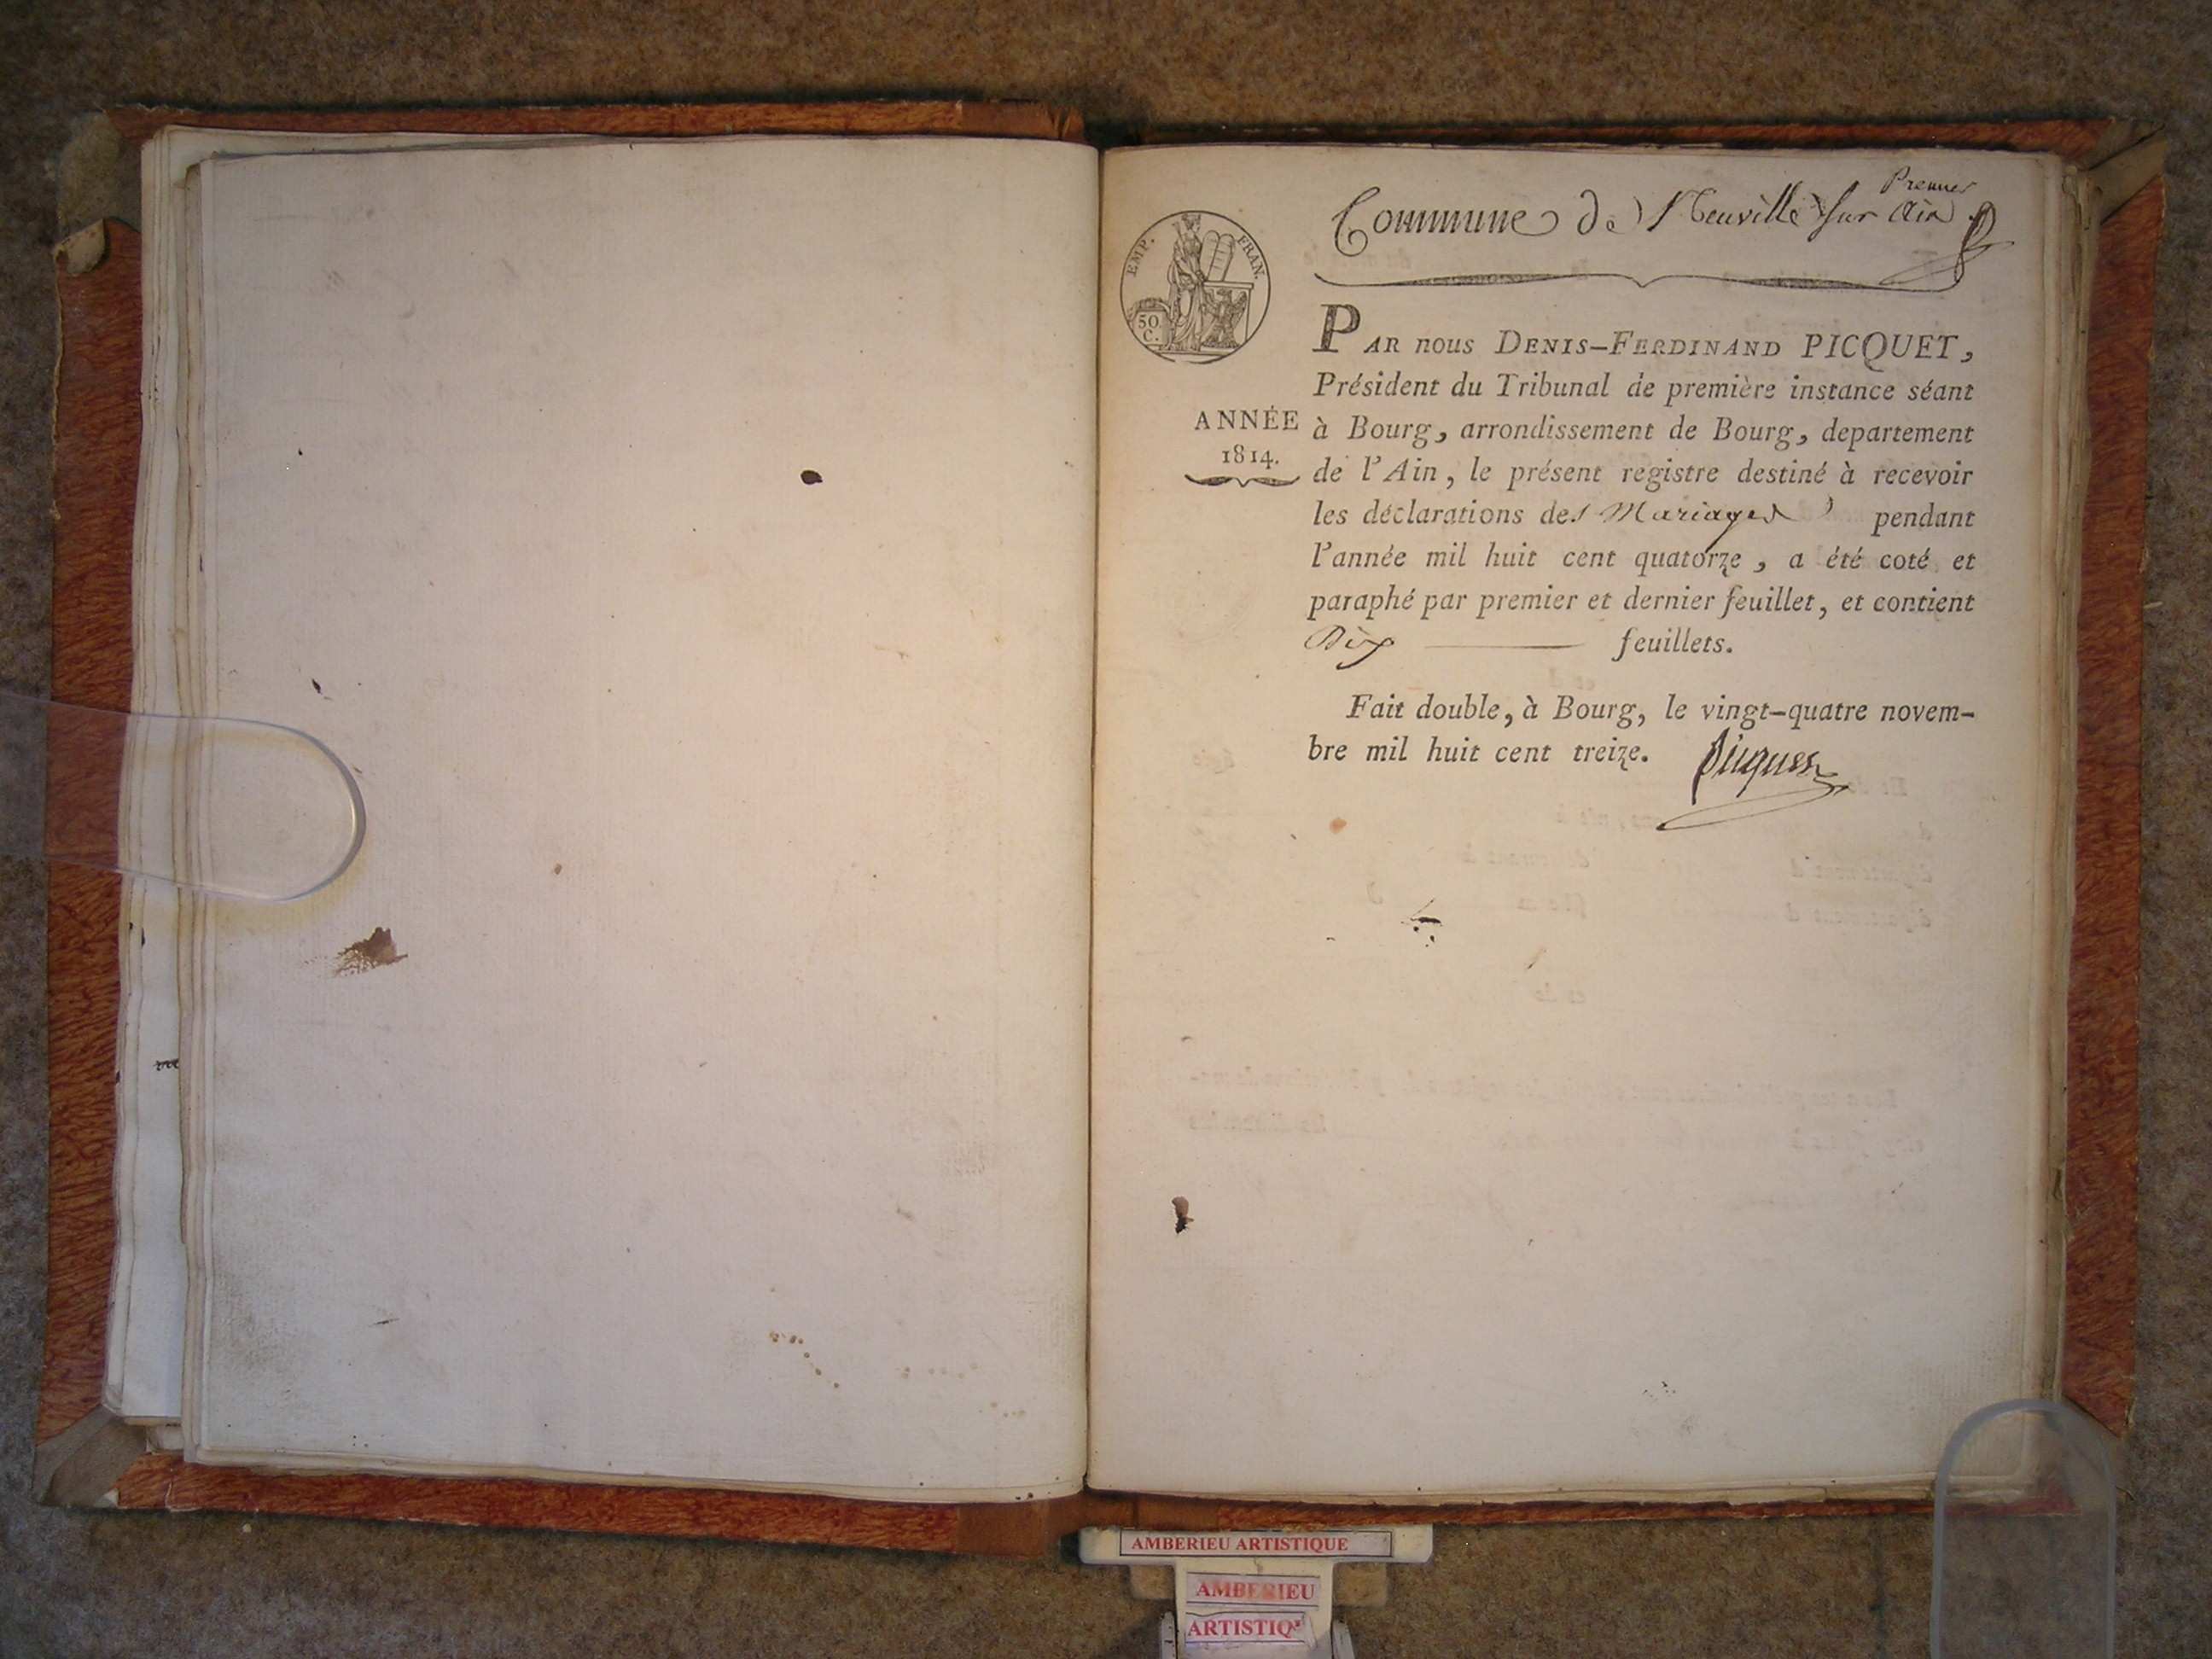 Premier
Commune de Neuville sur Ain
EMP. FRAN.
50.
C.
ANNÉE
1814.
PAR nous DENIS-FERDINAND PICQUET,
Président du Tribunal de première instance séant
à Bourg, arrondissement de Bourg, departement
de l'Ain, le présent registre destiné à recevoir
les déclarations des Mariages pendant
l'année mil huit cent quatorze, a été coté et
paraphé par premier et dernier feuillet, et contient
Dix feuillets.
Fait double, à Bourg, le vingt-quatre novem-
bre mil huit cent treize. Picquet
AMBERIEU ARTISTIQUE
AMBERIEU
ARTISTIQ